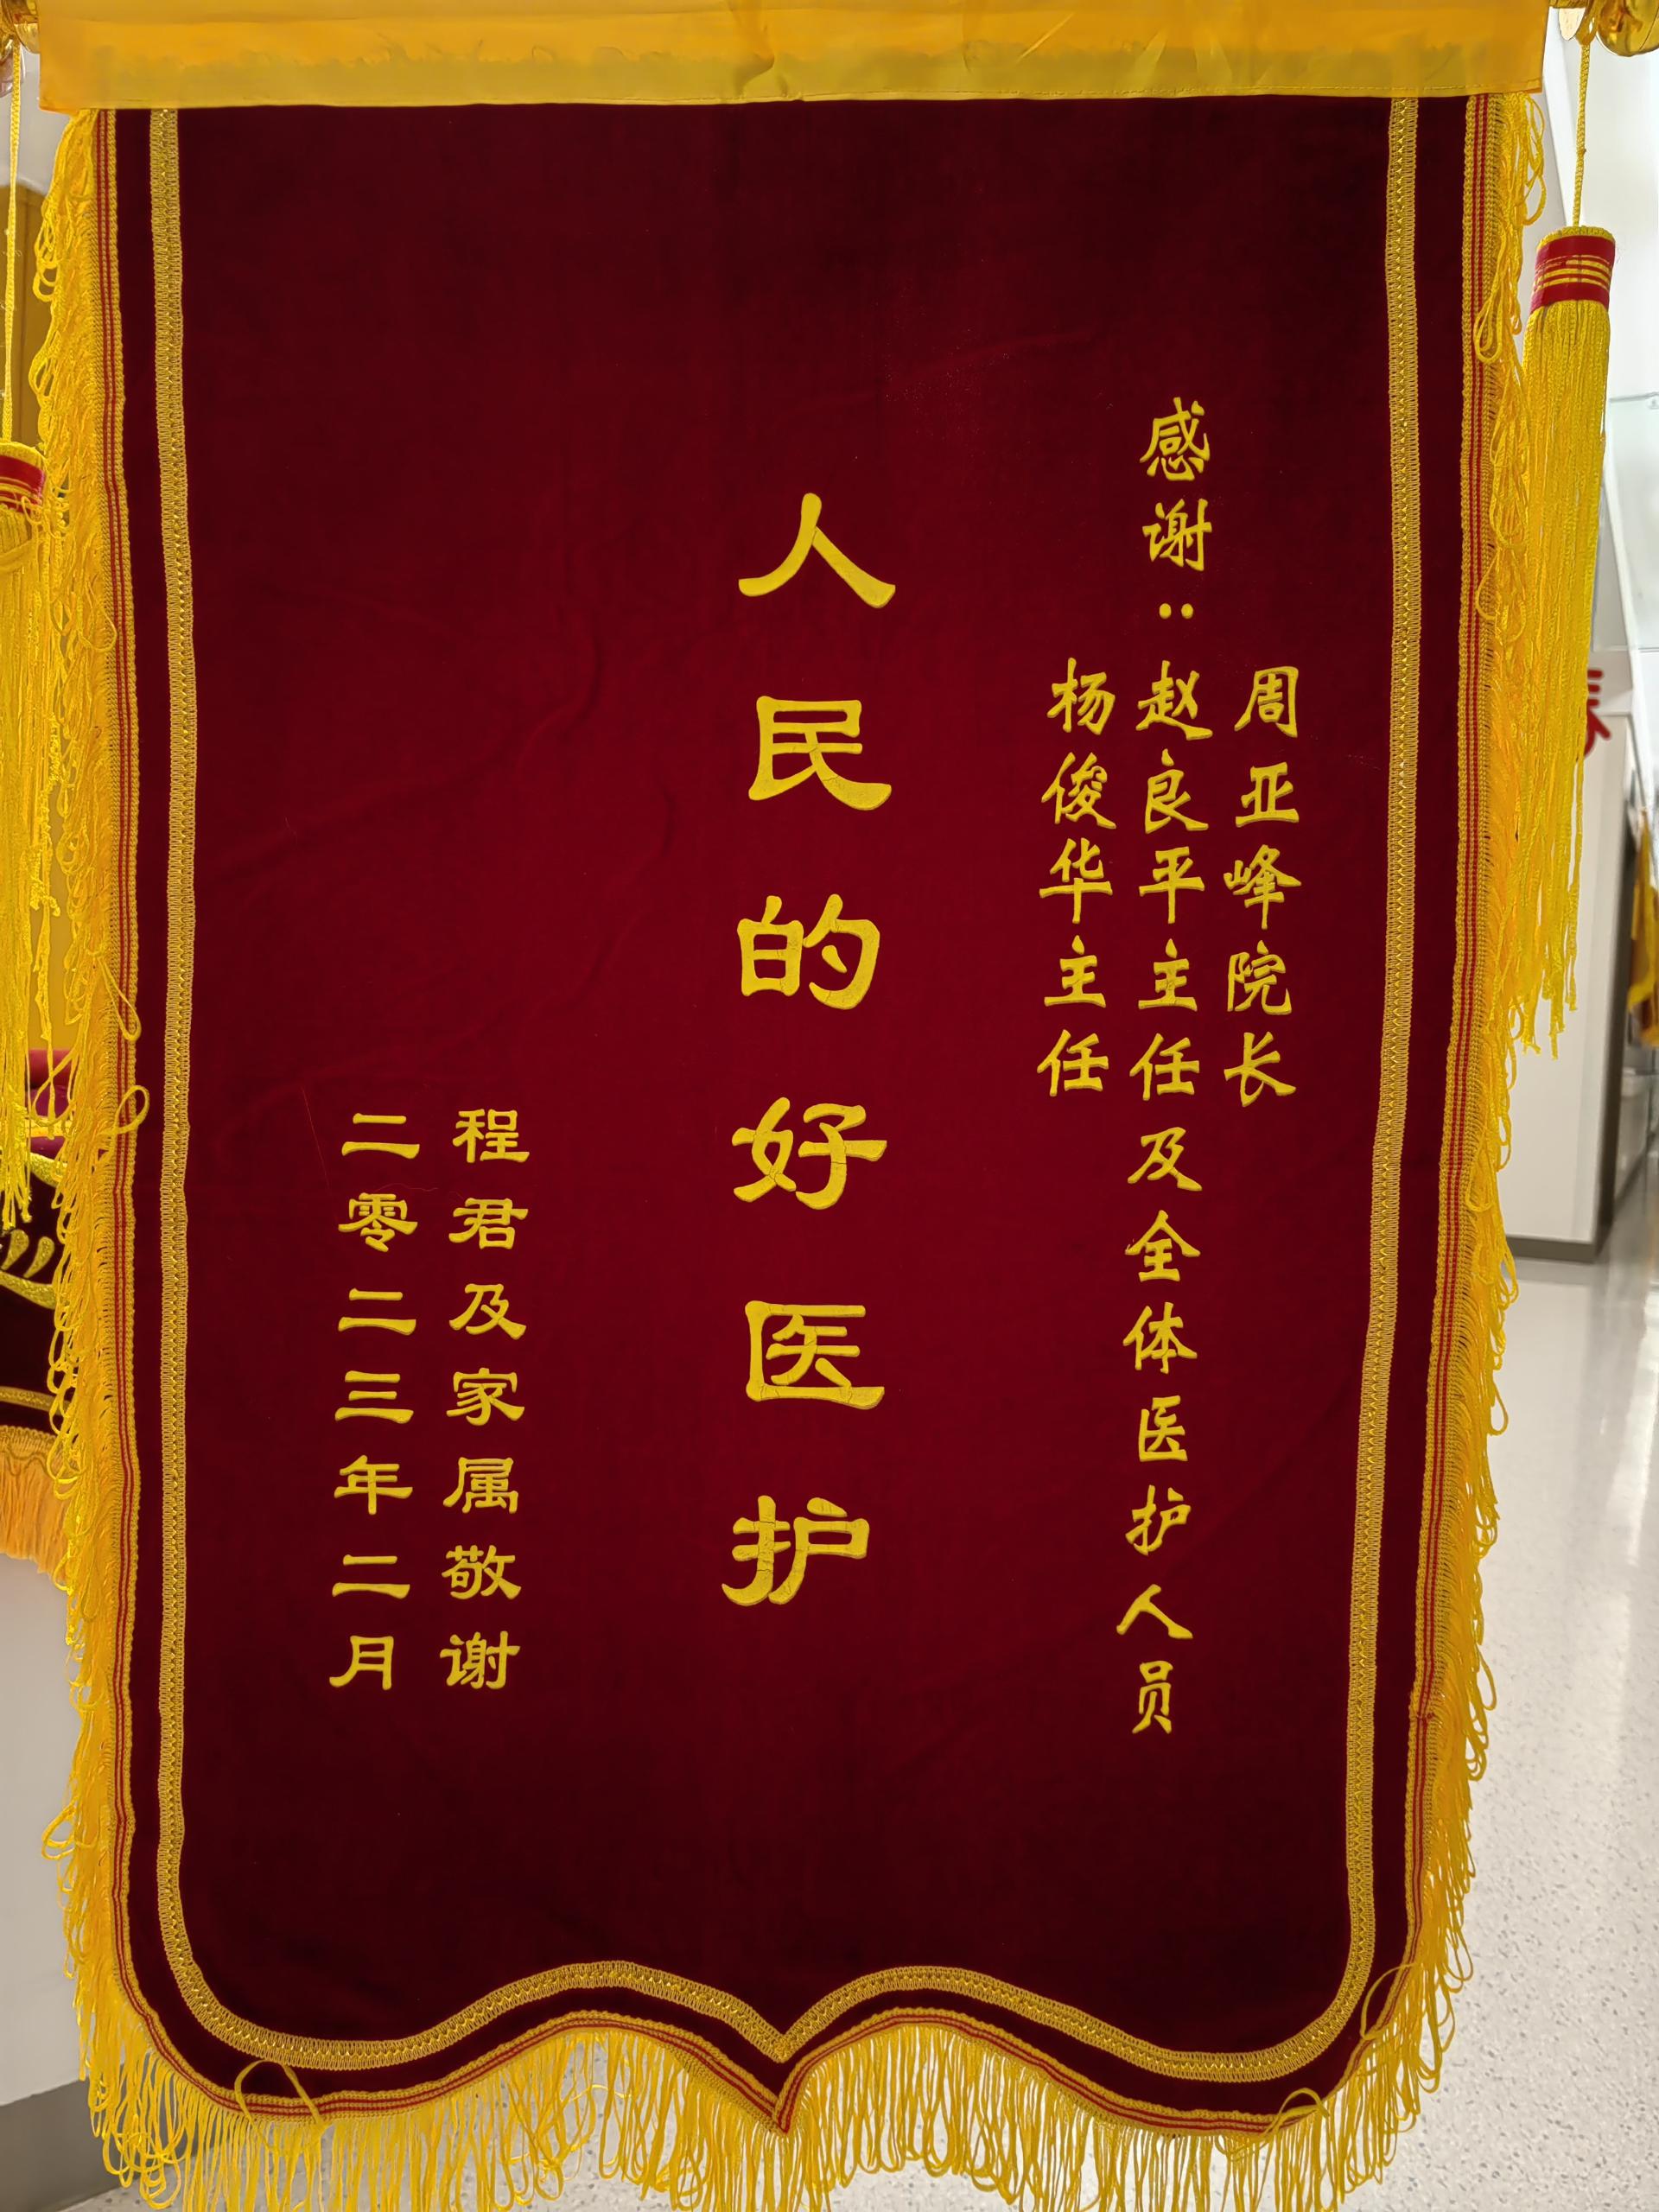 周亚峰院长
感谢：赵良平主任及全体医护人员
杨俊华主任
人民的好医护
程君及家属敬谢
二零二三年二月